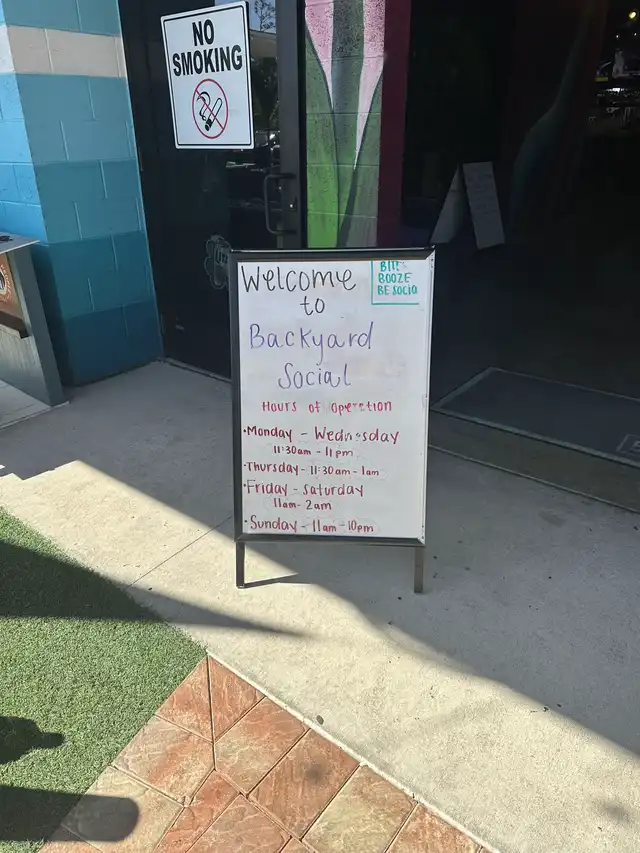 NO
SMOKING
Welcome
to
Backyard
Social
BOOZE
BE SOCIA
Hours of operation
•Monday - Wednesday
11:30am - 11pm
•Thursday - 11:30am - 1am
•Friday - Saturday
11am - 2am
•Sunday - 11am - 10pm